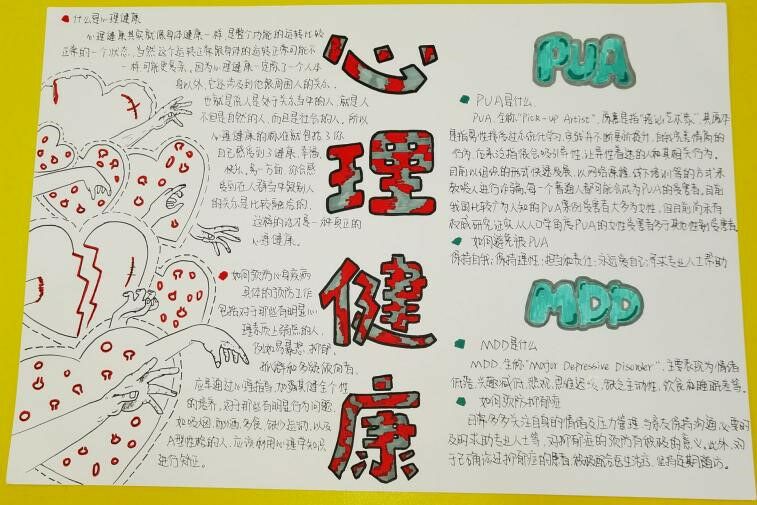 什么是心理健康
心理健康其实就像身体健康一样，是整个功能的运转比较
正常的一个状态，当然这个运转正常跟身体的运转正常可能不
一样可能更复杂，因为心理健康一定除了一个人本
身以外，它还涉及到他跟周围人的关系，
也就是说人是处于关系当中的人，就是人
不但是自然的人，而且是社会的人，所以
心理健康的确应该就包括了你
自己感觉到了健康、幸福、
快乐，另一方面，你会感
觉到在人群当中跟别人
的关系是比较融洽的，
这样的话才是一种真正的
心理健康。
如何预防心身疾病
具体的预防工作
包括对于那些有明显心
理素质上弱点的人，
例如易暴怒、抑郁、
孤僻和多疑倾向者，
应早通过心理指导，加强其健全个性
的培养，对于那些有明显行为问题，
如吸烟、酗酒、多食、缺少运动，以及
A型性格的人，应该利用心理学知识
进行矫正。
心理健康
PUA
PUA是什么
PUA，全称"Pick-up Artist"，原意是指"搭讪艺术家"，其原本
是指男性接受过系统化学习、实践并不断更新提升、自我完善情商的
行为，后来泛指很会吸引异性、让异性着迷的人和其相关行为。
目前以组织的形式快速发展，以网络兼职、线下培训等的方式来
教唆人进行诈骗，每一个普通人都可能会成为PUA的受害者。目前
我国比较广为人知的PUA案例受害者大多为女性，但目前尚未有
权威研究证实从人口学角度PUA的女性受害者多于其他性别受害者。
如何避免被PUA
保持自我；保持理性；担当和责任；永远爱自己；寻求专业人士帮助
MDD
MDD是什么
MDD，全称"Major Depressive Disorder"，主要表现为情绪
低落，兴趣减低，悲观，思维迟缓，缺乏主动性，饮食、睡眠差等。
如何预防抑郁症
日常多多关注自身的情绪及压力管理，与亲友保持沟通，必要时
及时求助专业人士等，对抑郁症的预防有积极的意义。此外，对
于已确诊过抑郁症的患者，积极配合医生治疗，坚持定期随访。